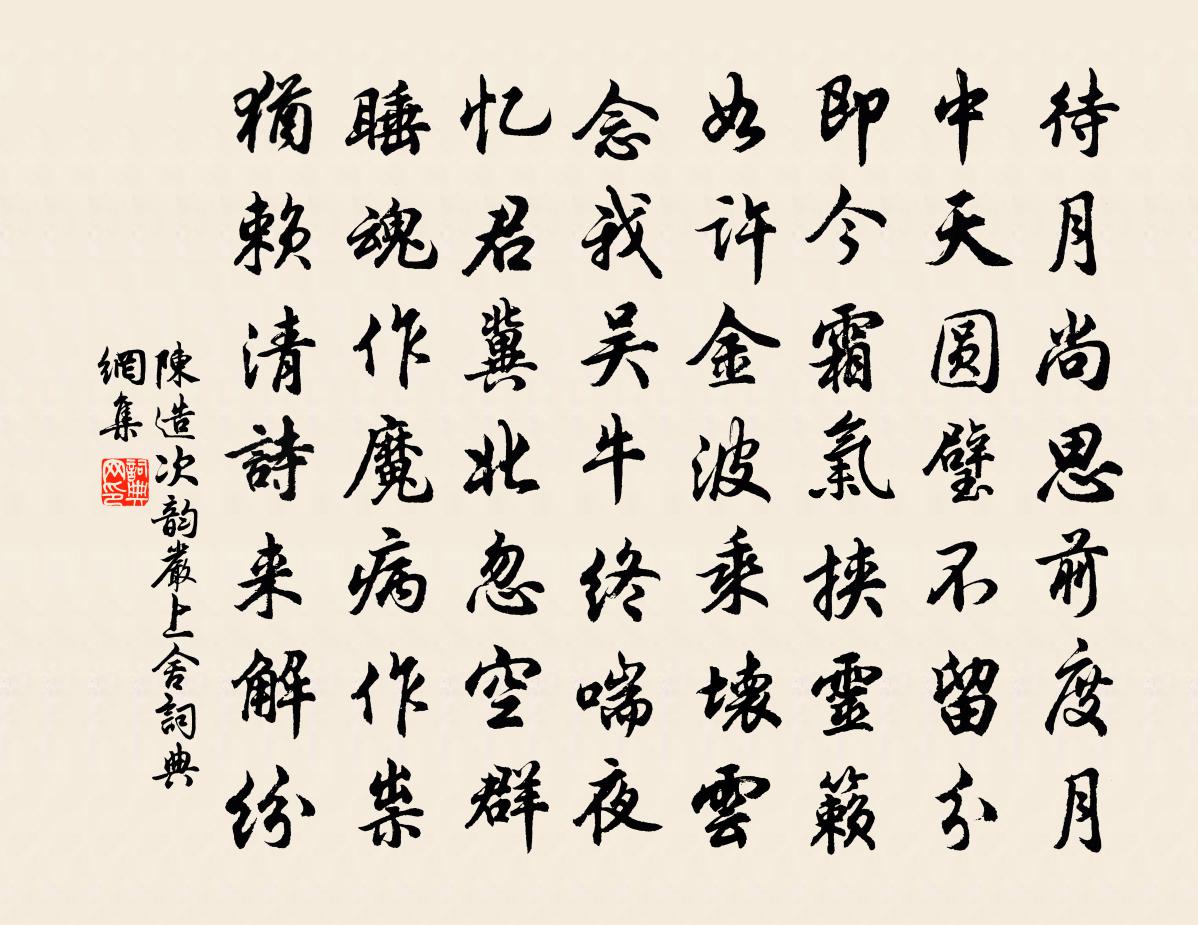 待月尚思前度月
中天圆璧不留分
即今霜氣挾靈籟
如许金波乘壊雲
念我吴牛终喘夜
忆君冀北忽空群
睡魂作魔病作祟
猶赖清詩来解纷
陳造次韵嚴上舍詞典
網集
詞典网印